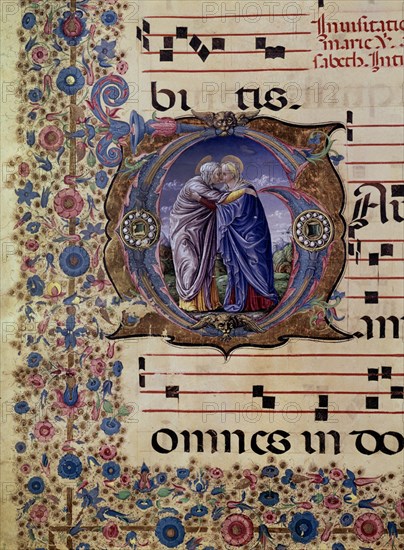 Inuisitatio
marie V. a
sabeth. Inti
bi tis.
G Au
am
omnes in do